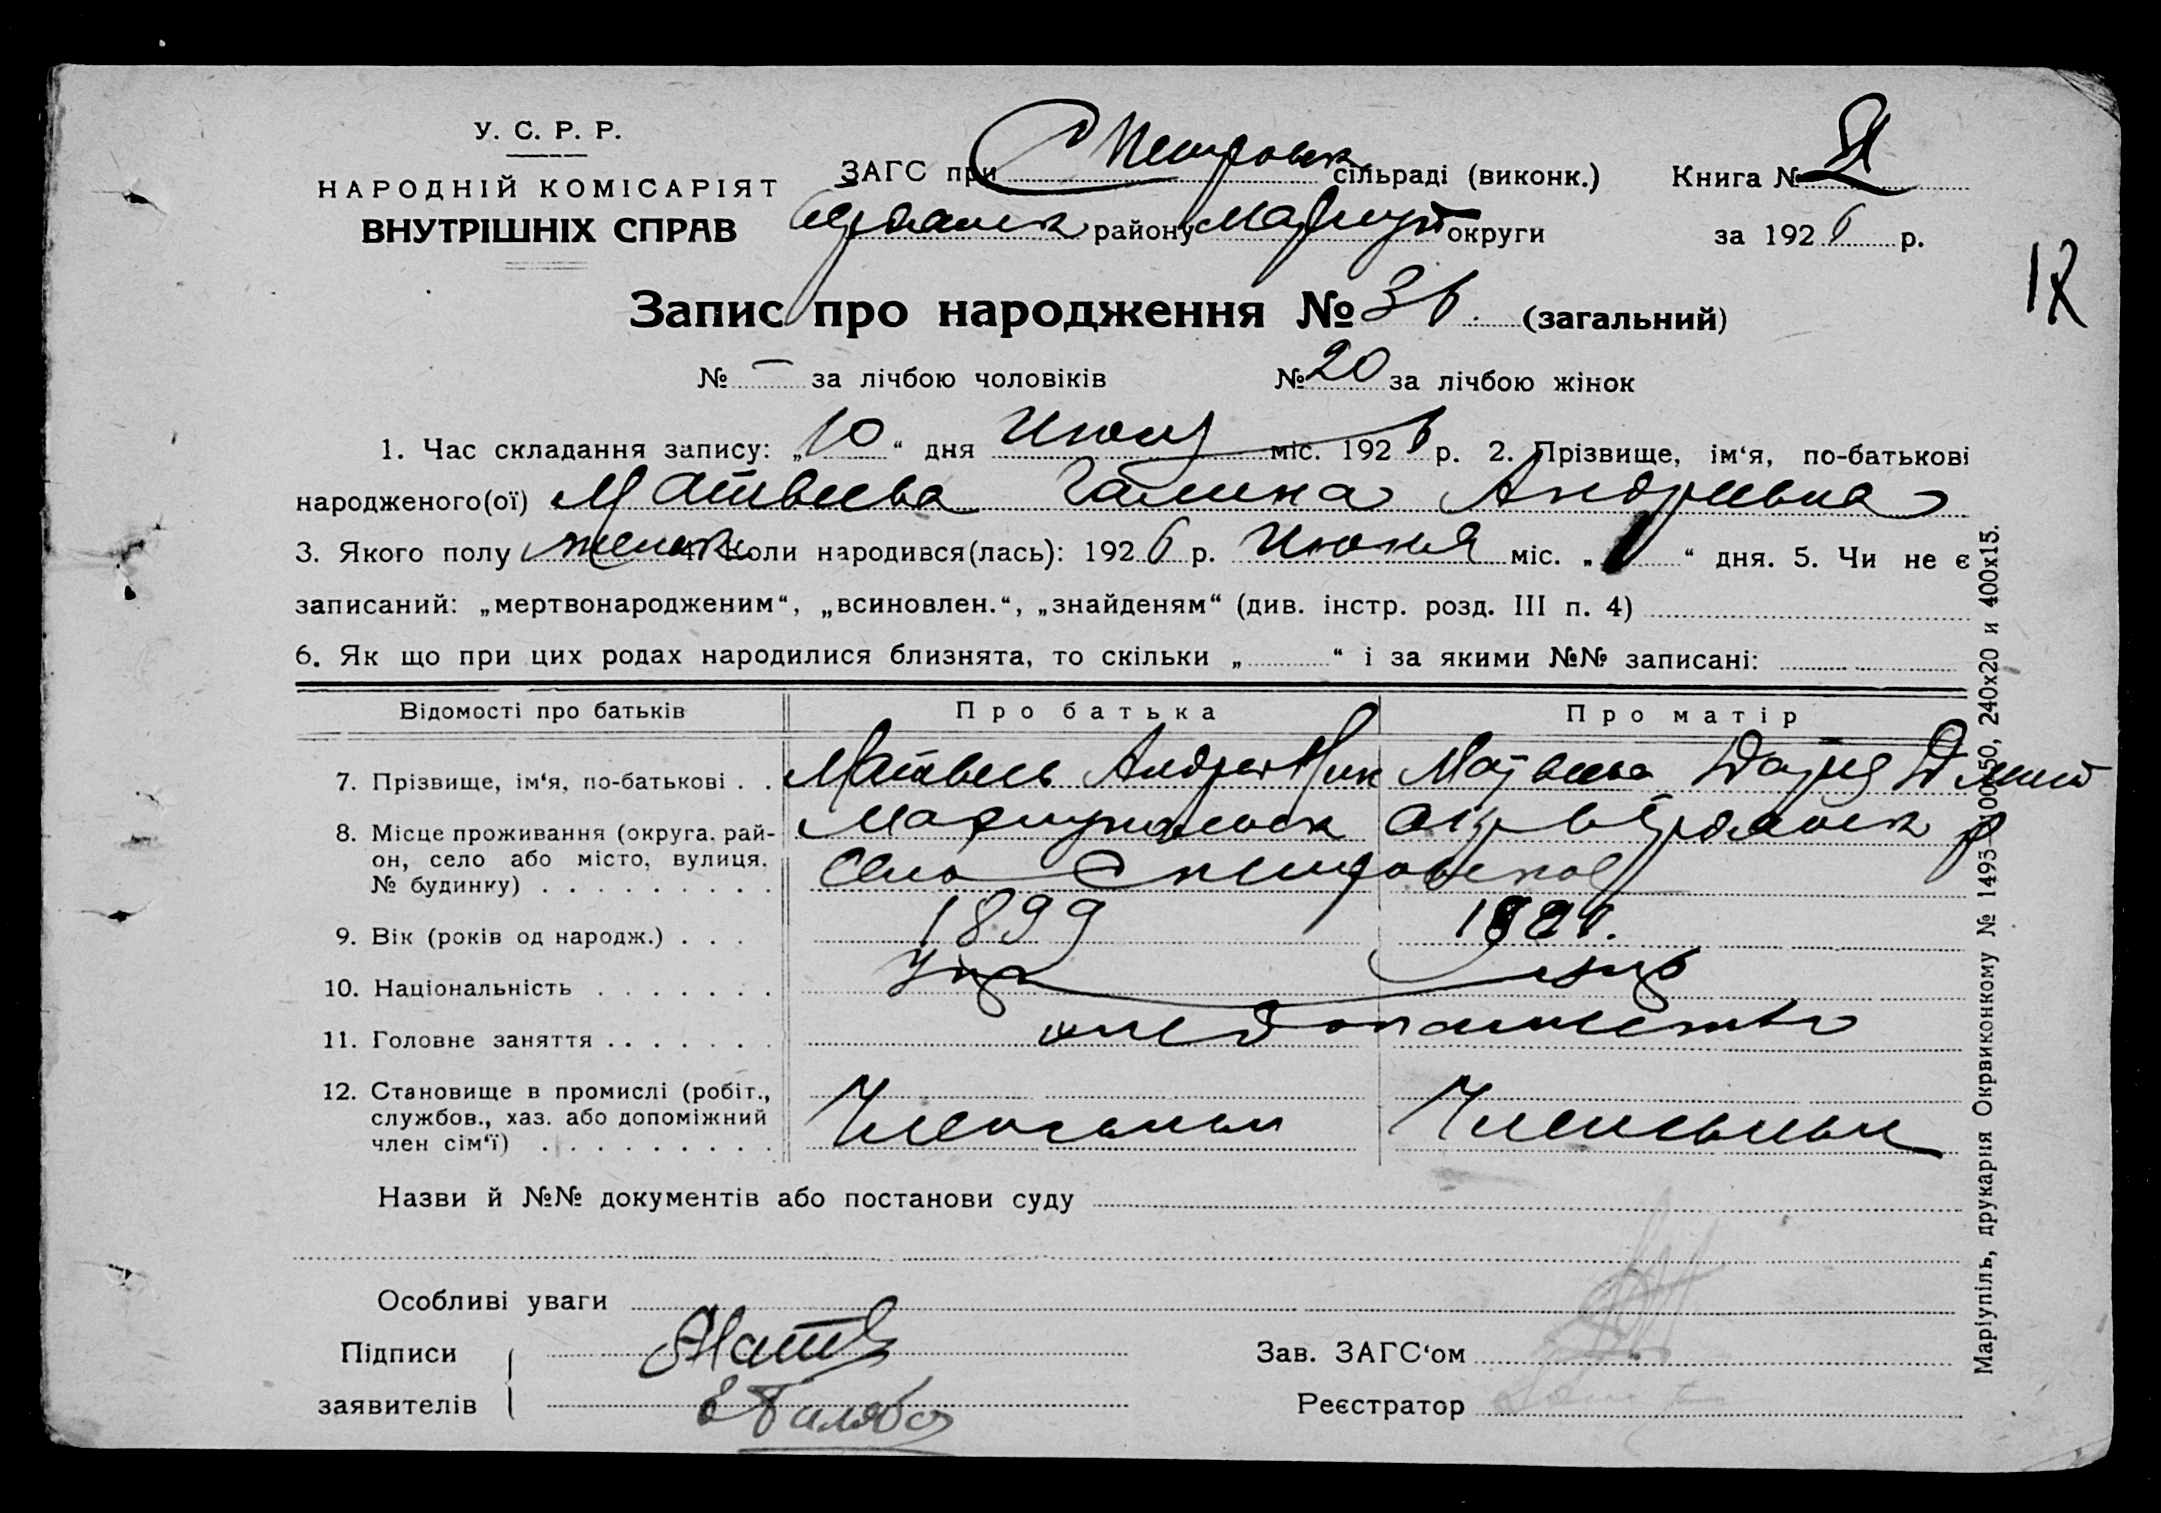 У. С. Р. Р.
НАРОДНІЙ КОМІСАРІЯТ
ВНУТРІШНІХ СПРАВ
ЗАГС при С Петровск сільраді (виконк.)
Бердянск району Мариуп округи
Книга №
за 1926 р.
Запис про народження № 36. (загальний)
№ — за лічбою чоловіків № 20 за лічбою жінок
1. Час складання запису: „10“ дня Июля міс. 1926 р. 2. Прізвище, ім‘я, по-батькові
народженого(ої) Матвеева Галина Андреевна
3. Якого полу женск 4. Коли народився(лась): 1926 р. Июня міс. „ “ дня. 5. Чи не є
записаний: „мертвонародженим“, „всиновлен.“, „знайденям“ (див. інстр. розд. III п. 4)
6. Як що при цих родах народилися близнята, то скільки „ “ і за якими №№ записані:
Відомості про батьків Про батька Про матір
7. Прізвище, ім‘я, по-батькові . . Матвеев Андрей Ник Матвеева Дария Дмит
8. Місце проживання (округа, рай-
он, село або місто, вулиця,
№ будинку) . . . . . . . . .
Мариупольск окр Бердянск р
Село Петровское
9. Вік (років од народж.) . . . 1899
10. Національність . . . . . . . Укр
11. Головне заняття . . . . . . . хлебопашество
12. Становище в промислі (робіт.,
службов., хаз. або допоміжний
член сім‘ї) . . . . . . . . .
Член семьи Член семьи
Назви й №№ документів або постанови суду
Особливі уваги
Підписи
заявителів
Зав. ЗАГС‘ом
Реєстратор
Маріупіль, друкарня Окрвиконкому № 1495—100×50, 240х20 и 400х15.